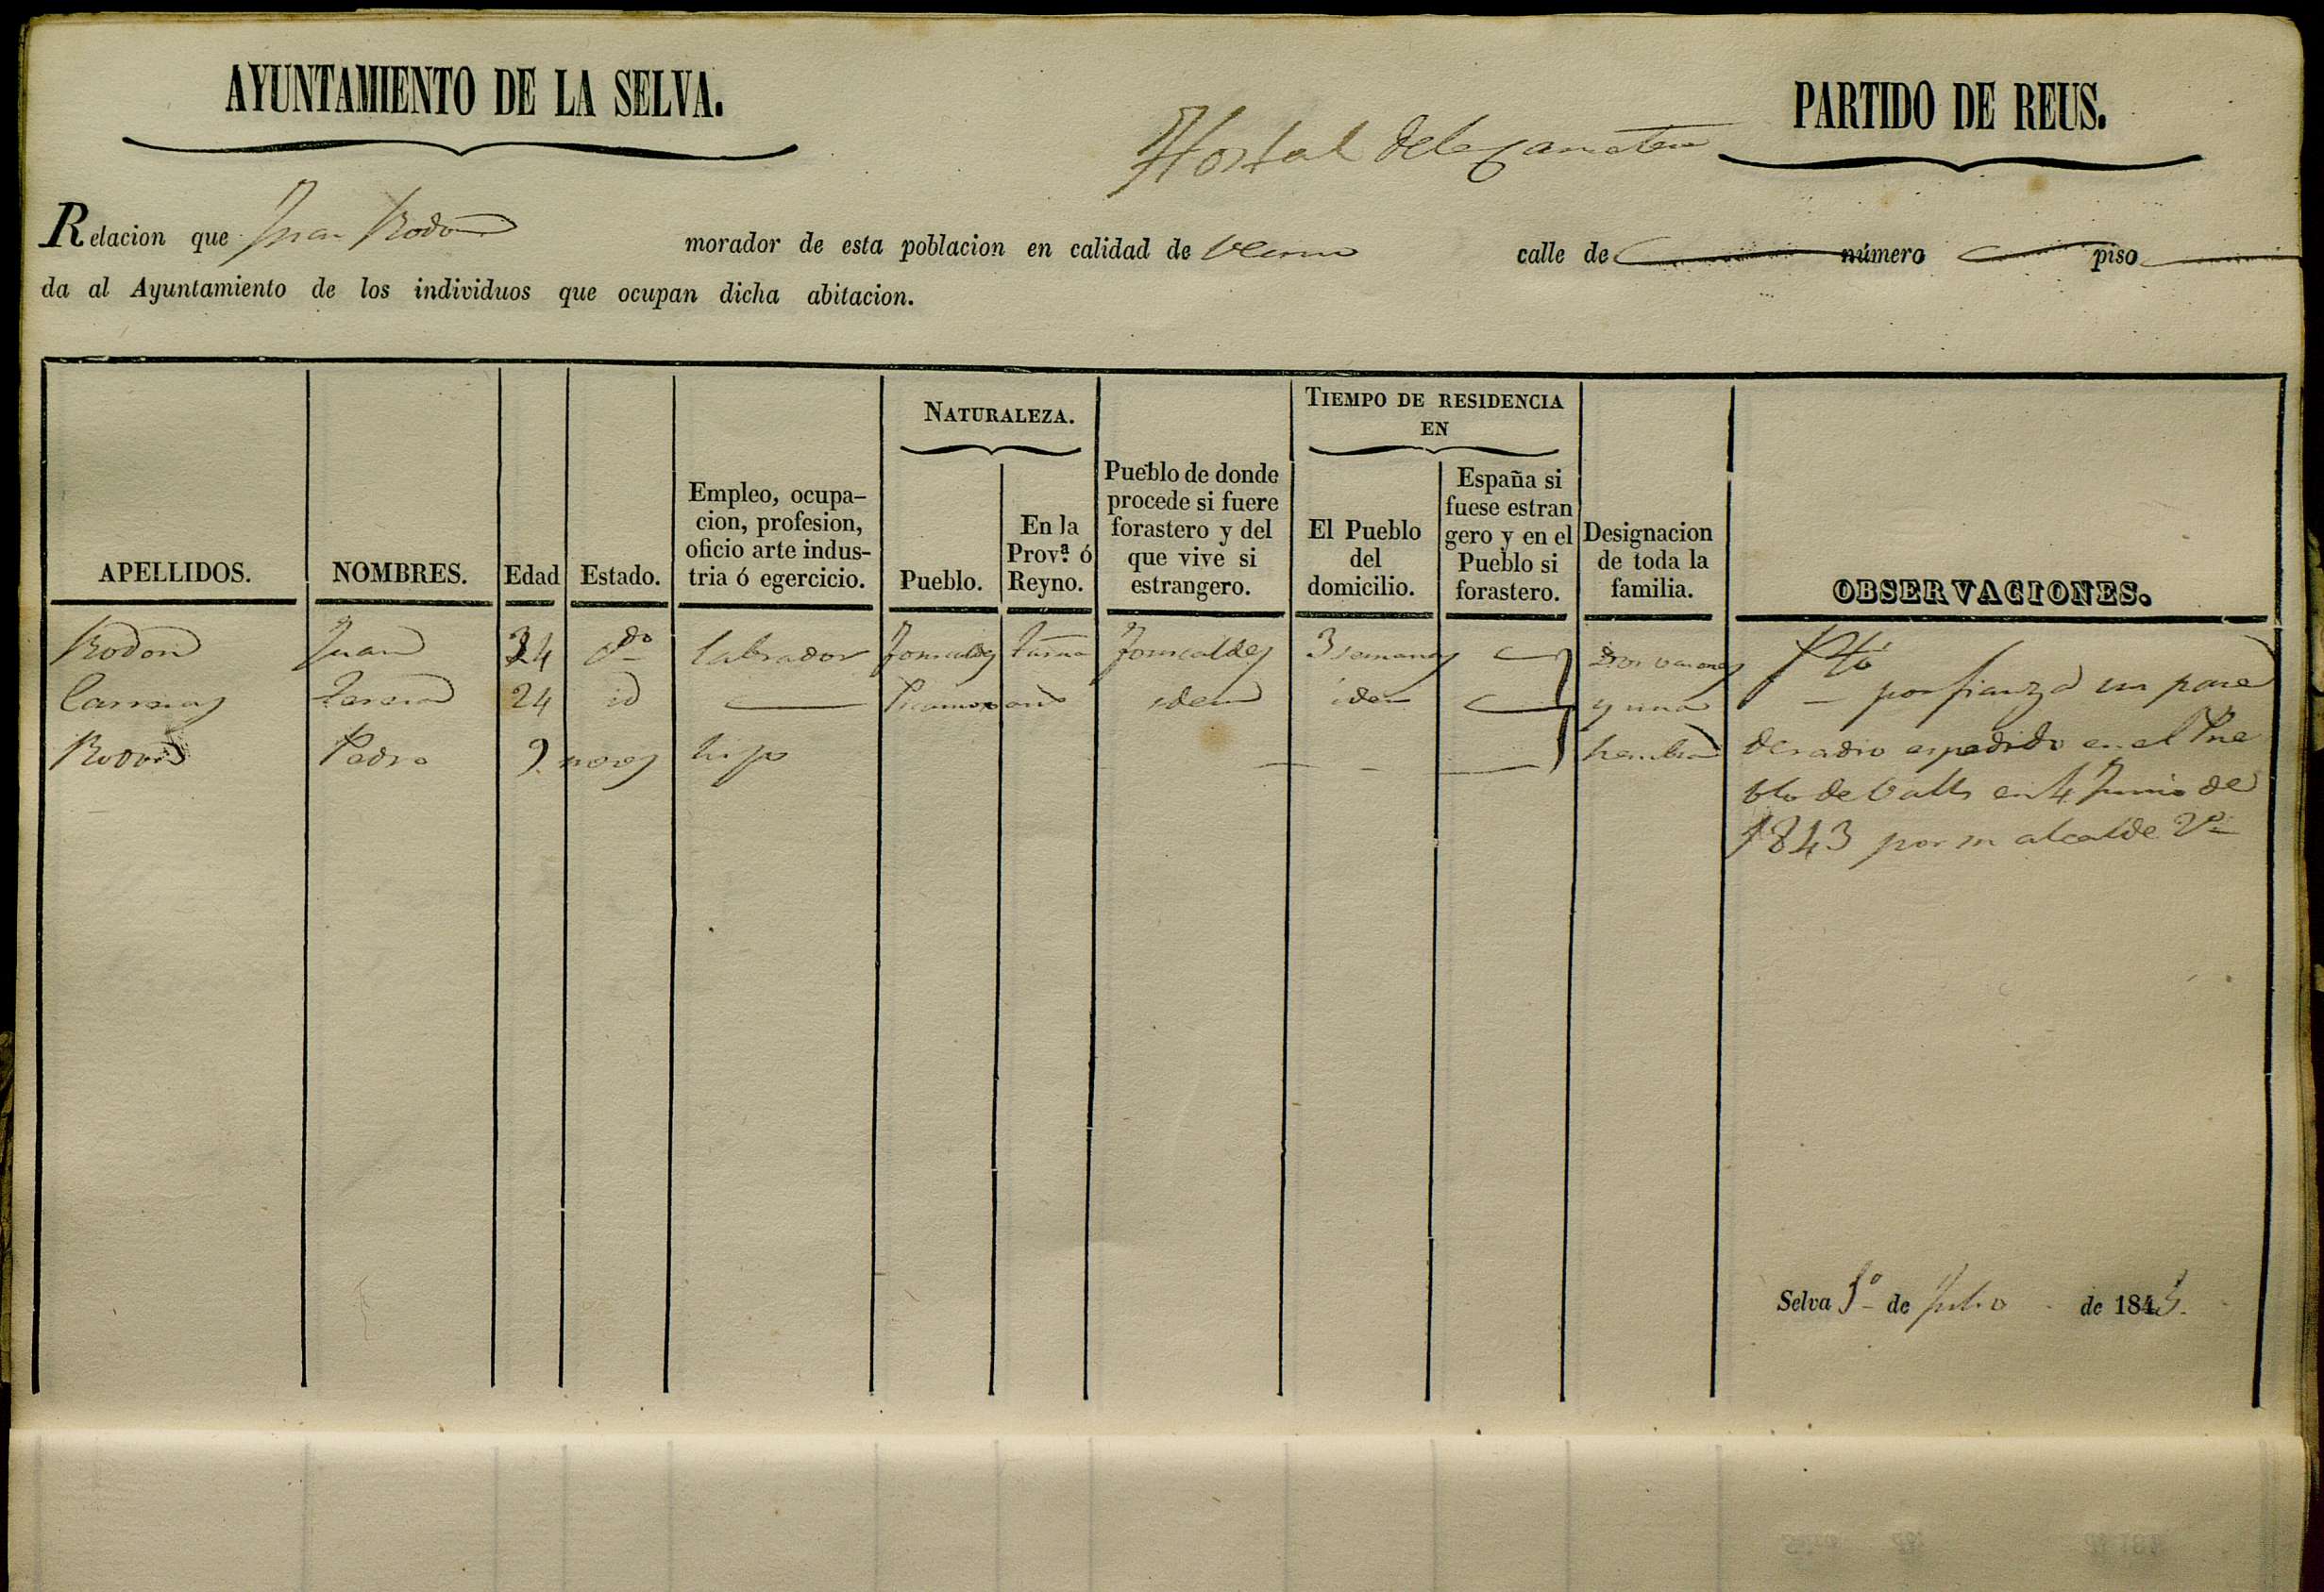 AYUNTAMIENTO DE LA SELVA.
PARTIDO DE REUS.
Hostal de la Carretera
Relacion que Juan Rodon morador de esta poblacion en calidad de vecino calle de número piso
da al Ayuntamiento de los individuos que ocupan dicha abitacion.
NATURALEZA.
TIEMPO DE RESIDENCIA
EN
APELLIDOS.
NOMBRES.
Edad
Estado.
Empleo, ocupa-
cion, profesion,
oficio arte indus-
tria ó egercicio.
Pueblo.
En la
Prov.ª ó
Reyno.
Pueblo de donde
procede si fuere
forastero y del
que vive si
estrangero.
El Pueblo
del
domicilio.
España si
fuese estran
gero y en el
Pueblo si
forastero.
Designacion
de toda la
familia.
OBSERVACIONES.
Rodon Juan 34 labrador Fonscaldes Fonscaldes 3 semanas Dos varones
Carreras Teresa 24 id idem idem y una
Rodon Pedro 9 meses hijo hembra
por fianza un pase
de radio espedido en el Pue
blo de Valls en 4 Junio de
1843 por su alcalde
Selva 1º de Julio de 1843.